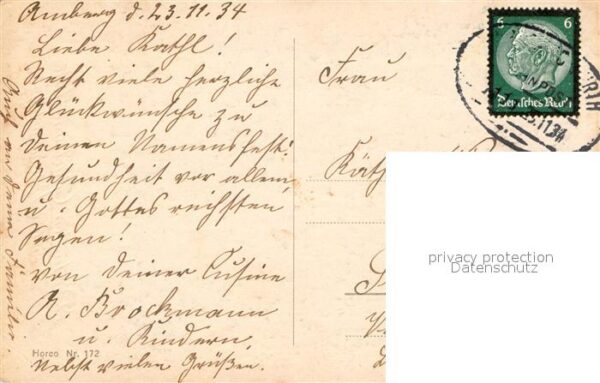 Amberg d. 23.11.34
Liebe Kathl!
Recht viele herzliche
Glückwünsche zu
Deinem Namensfest!
Gesundheit vor allem,
u. Gottes reichsten
Segen!
von Deiner Cusine
R. Brockmann
u. Kindern.
Nebst vielen Grüßen.
Horco Nr. 172
Frau
6 6
Deutsches Reich
11.34
privacy protection
Datenschutz